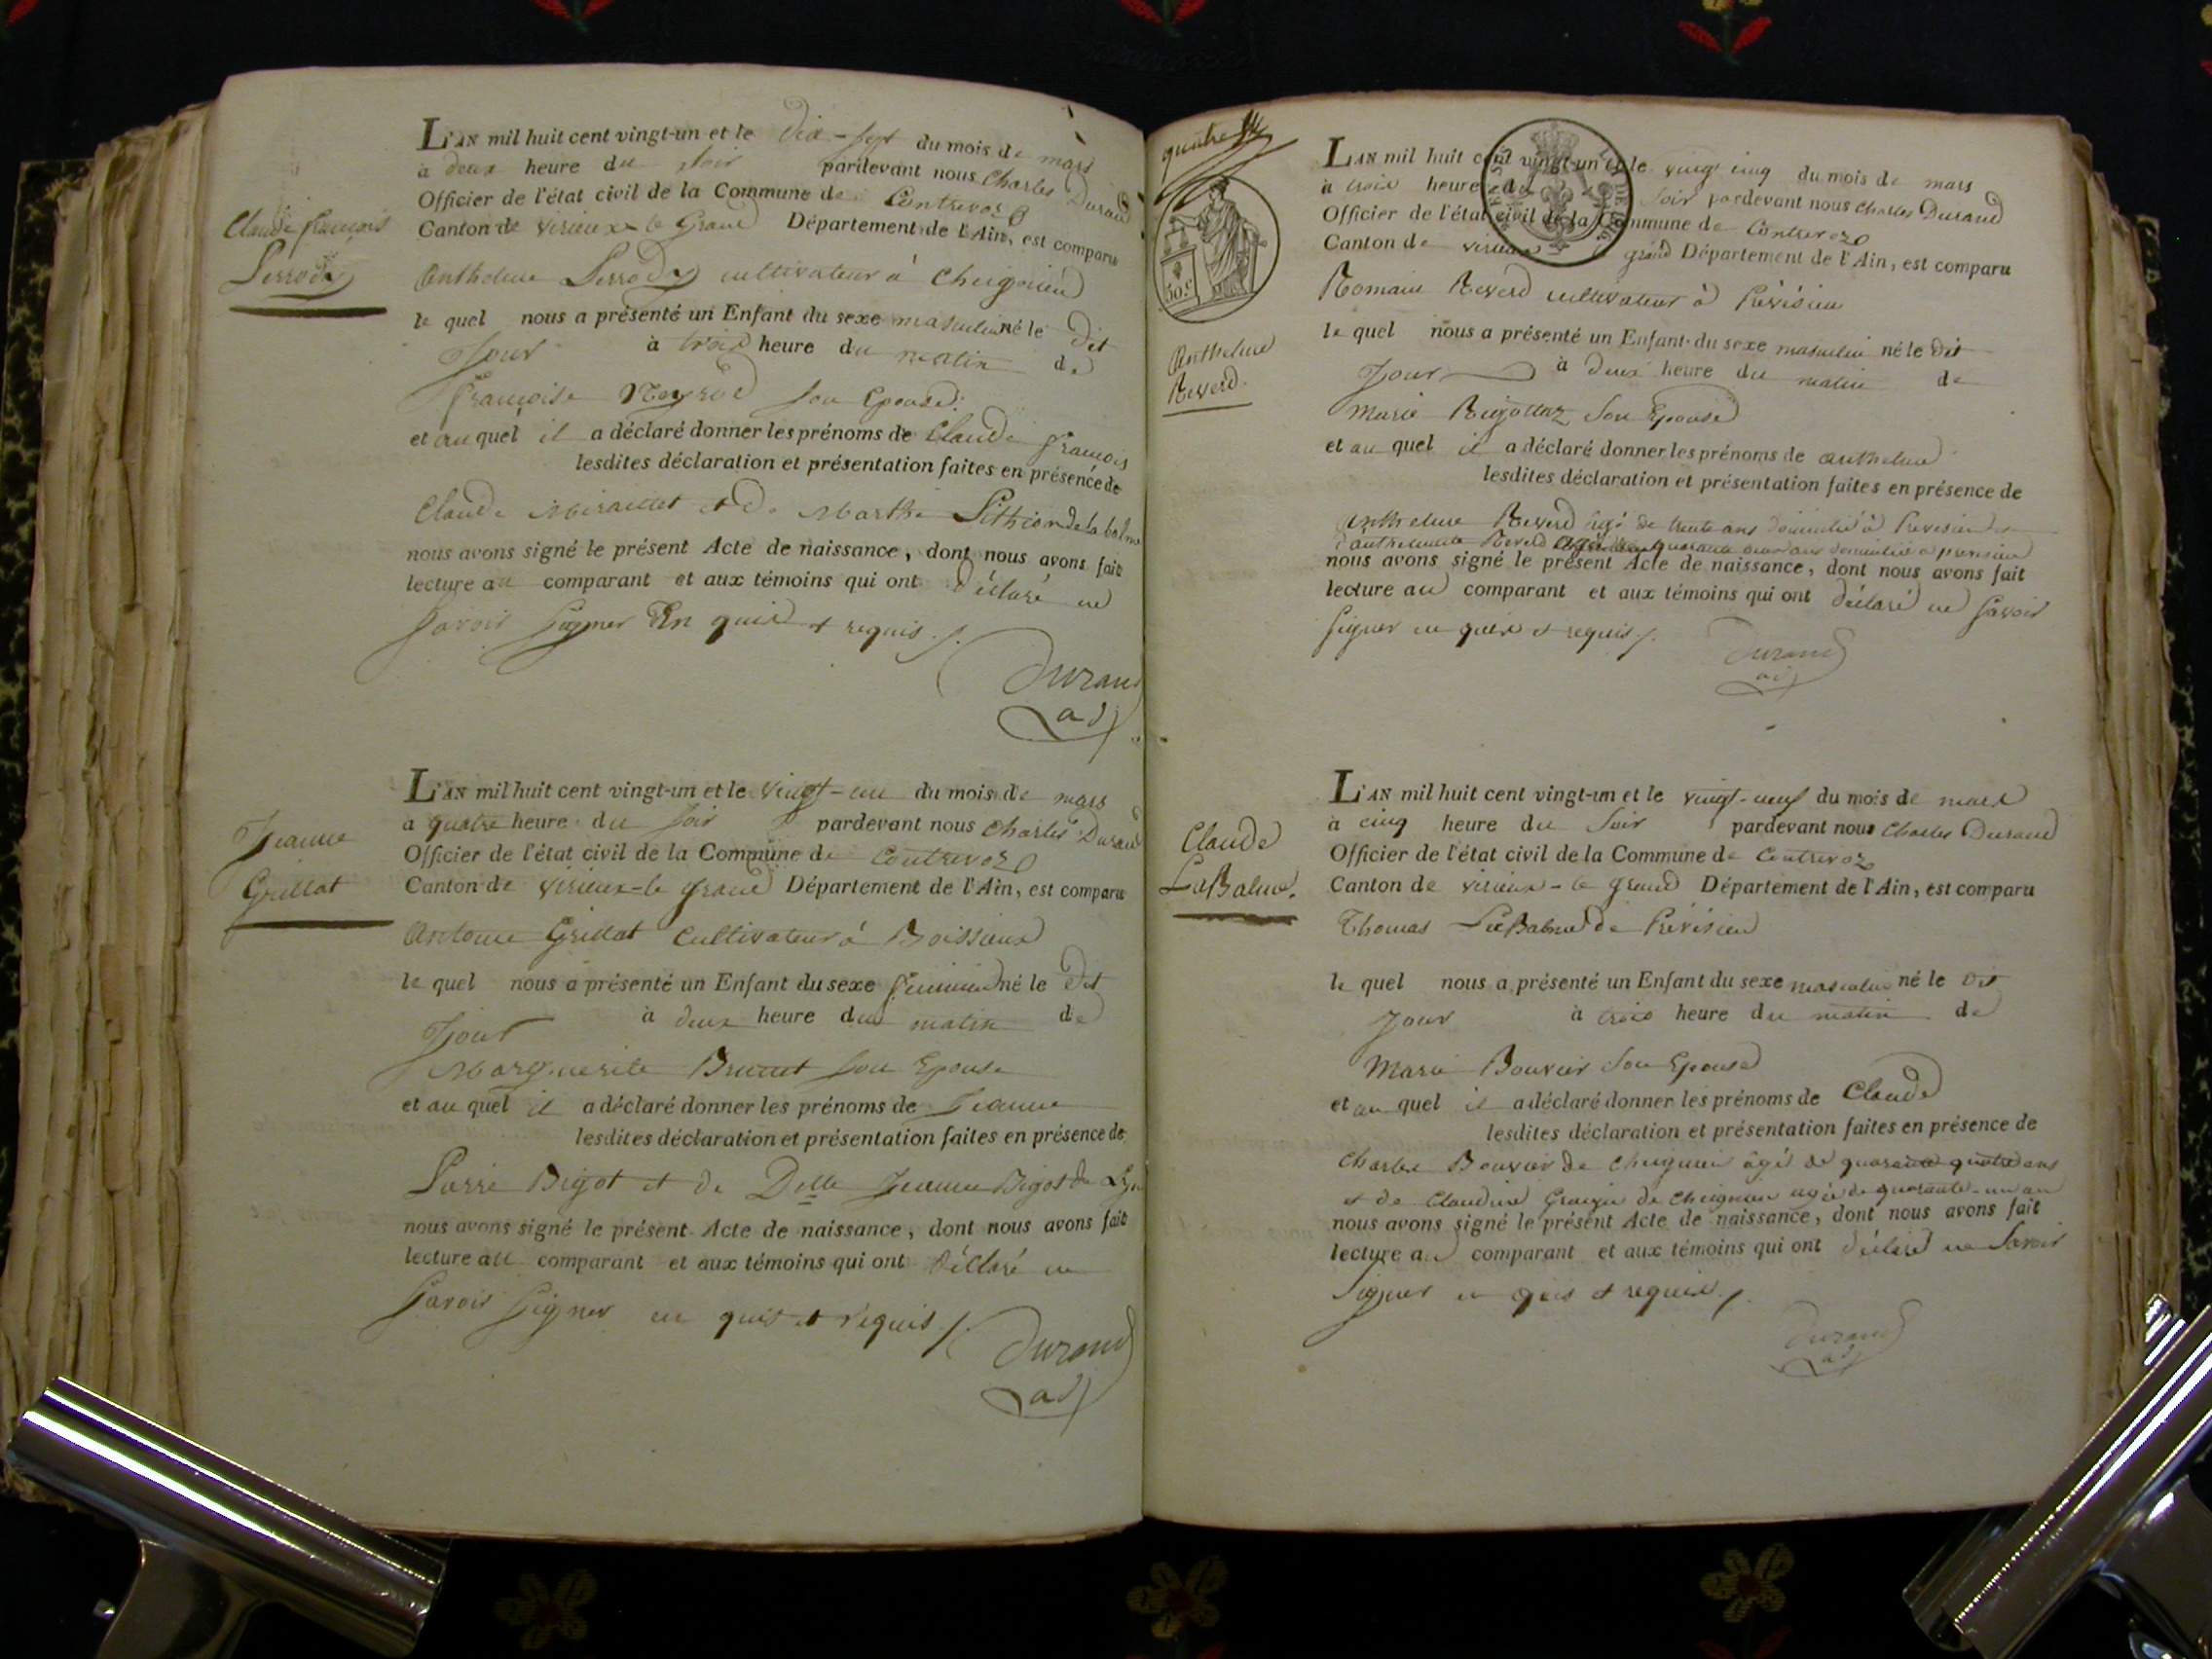 Claude françois
Perrody
L'AN mil huit cent vingt-un et le dix-sept du mois de mars
à deux heure du soir pardevant nous Charles Durand
Officier de l'état civil de la Commune de Contrevoz
Canton de virieux-le Grand Département de l'Ain, est comparu
Anthelme Perrody cultivateur à Cheignieu
le quel nous a présenté un Enfant du sexe masculin né le dit
Jour à trois heure du matin de
françoise Neyrod son Epouse
et au quel il a déclaré donner les prénoms de Claude françois
lesdites déclaration et présentation faites en présence de
Claude Miraillet et de Marthe Pithion de la balme
nous avons signé le présent Acte de naissance, dont nous avons fait
lecture au comparant et aux témoins qui ont déclaré ne
Savoir Signer En quis et requis ./.
Durand
adj
Jeanne
Grillat
L'AN mil huit cent vingt-un et le vingt-un du mois de mars
à quatre heure du soir pardevant nous Charles Durand
Officier de l'état civil de la Commune de Contrevoz
Canton de virieux-le grand Département de l'Ain, est comparu
Antoine Grillat Cultivateur à Boissieux
le quel nous a présenté un Enfant du sexe feminin né le dit
Jour à deux heure du matin de
Marguerite Brunet son Epouse
et au quel il a déclaré donner les prénoms de Jeanne
lesdites déclaration et présentation faites en présence de
Pierre Bigot et de Delle Jeanne Bigot de
nous avons signé le présent Acte de naissance, dont nous avons fait
lecture au comparant et aux témoins qui ont déclaré ne
Savoir Signer en quis et requis ./.
Durand
adj
quatre
50 c
Anthelme
Reverd.
L'AN mil huit cent vingt-un et le vingt cinq du mois de mars
à trois heure du Soir pardevant nous Charles Durand
Officier de l'état civil de la Commune de Contrevoz
Canton de virieux le grand Département de l'Ain, est comparu
Romain Reverd cultivateur à Prévisieu
le quel nous a présenté un Enfant du sexe masculin né le dit
Jour à deux heure du matin de
Marie Rigottaz son Epouse
et au quel il a déclaré donner les prénoms de anthelme
lesdites déclaration et présentation faites en présence de
Anthelme Reverd âgé de trente ans domicilié à Prévisieu et
d'anthelmette Reverd âgée de quarante deux ans domiciliée à prévisieu
nous avons signé le présent Acte de naissance, dont nous avons fait
lecture au comparant et aux témoins qui ont déclaré ne Savoir
Signer en quis et requis ./.
Durand
adj
Claude
LaBalme.
L'AN mil huit cent vingt-un et le vingt-neuf du mois de mars
à cinq heure du Soir pardevant nous Charles Durand
Officier de l'état civil de la Commune de Contrevoz
Canton de virieux-le grand Département de l'Ain, est comparu
Thomas LaBalme de Prévisieu
le quel nous a présenté un Enfant du sexe masculin né le dit
Jour à trois heure du matin de
Marie Bouvier son Epouse
et au quel il a déclaré donner les prénoms de Claude
lesdites déclaration et présentation faites en présence de
Charles Bouvier de Cheignieu âgé de quarante quatre ans
et de Claudine de Cheignieu agée de quarante-un an
nous avons signé le présent Acte de naissance, dont nous avons fait
lecture au comparant et aux témoins qui ont déclaré ne Savoir
Signer en quis et requis ./.
Durand
adj